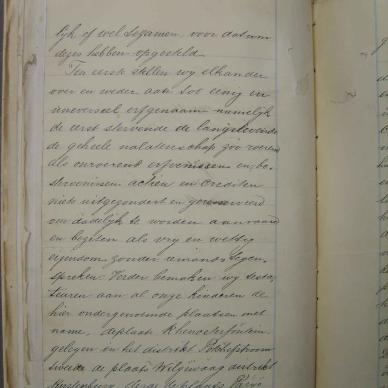 lyk of wel Sezamen, voor dat wm
dezes hebben opgesteld
Ten eerst stellen wy elkander
over en weder aan tot eenig en
universeel erfgenaam namelijk
de eerst stervende de langstlevende
de geheele nalatenschap zoo roerend
als onroerend erfenissen en be-
stervenissen actien en crediten
niets uitgezonderd en gereserveerd
om dadelijk te worden aanvaard
en bezeten als vry en wettig
eigendom zonder iemands tegen-
spreken. Verder bemaken wy testa-
teuren aan al onze kinderen de
hier ondergenoemde plaatsen met
name, deplaats Rhenosterfontein
gelegen in het distrikt Potchefstroom
tweede de plaats Wilgewaag distrikt
Rustenburg derde